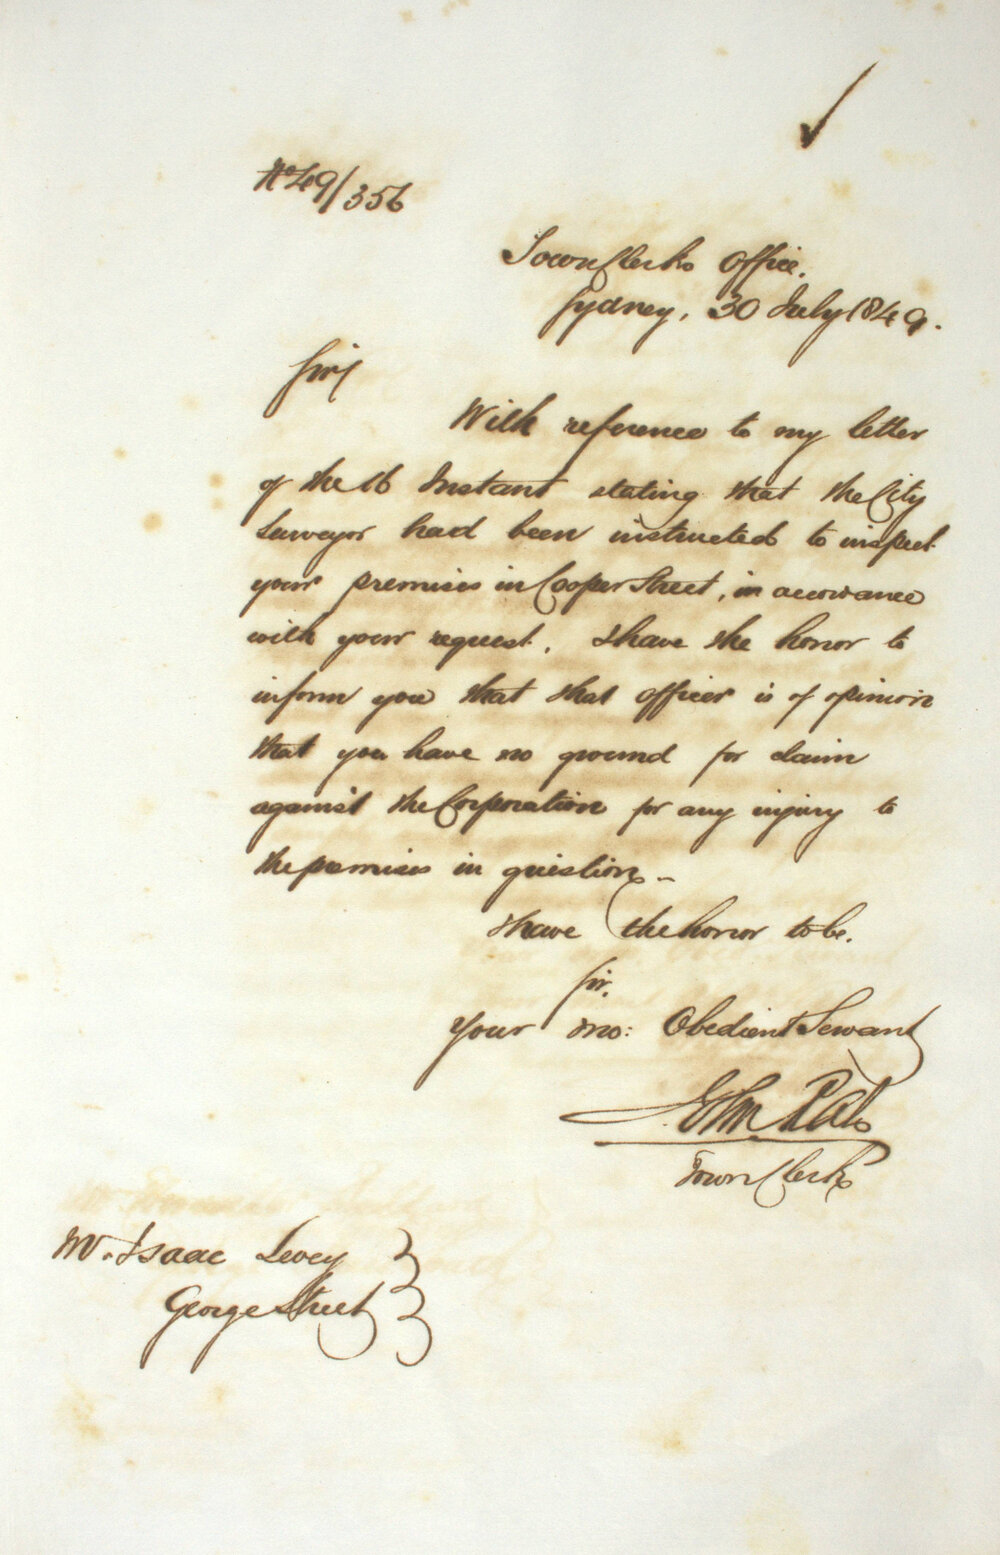 No 49/356
Town Clerks Office.
Sydney, 30 July 1849.
Sir
With reference to my letter
of the 16 Instant stating that the City
Surveyor had been instructed to inspect
your premises in Cooper Street, in accordance
with your request. I have the honor to
inform you that that officer is of opinion
that you have no ground for claim
against the Corporation for any injury to
the premises in question.
I have the honor to be.
Sir.
Your mo: Obedient Servant
John Rae
Town Clerk
Mr. Isaac Levey
George Street